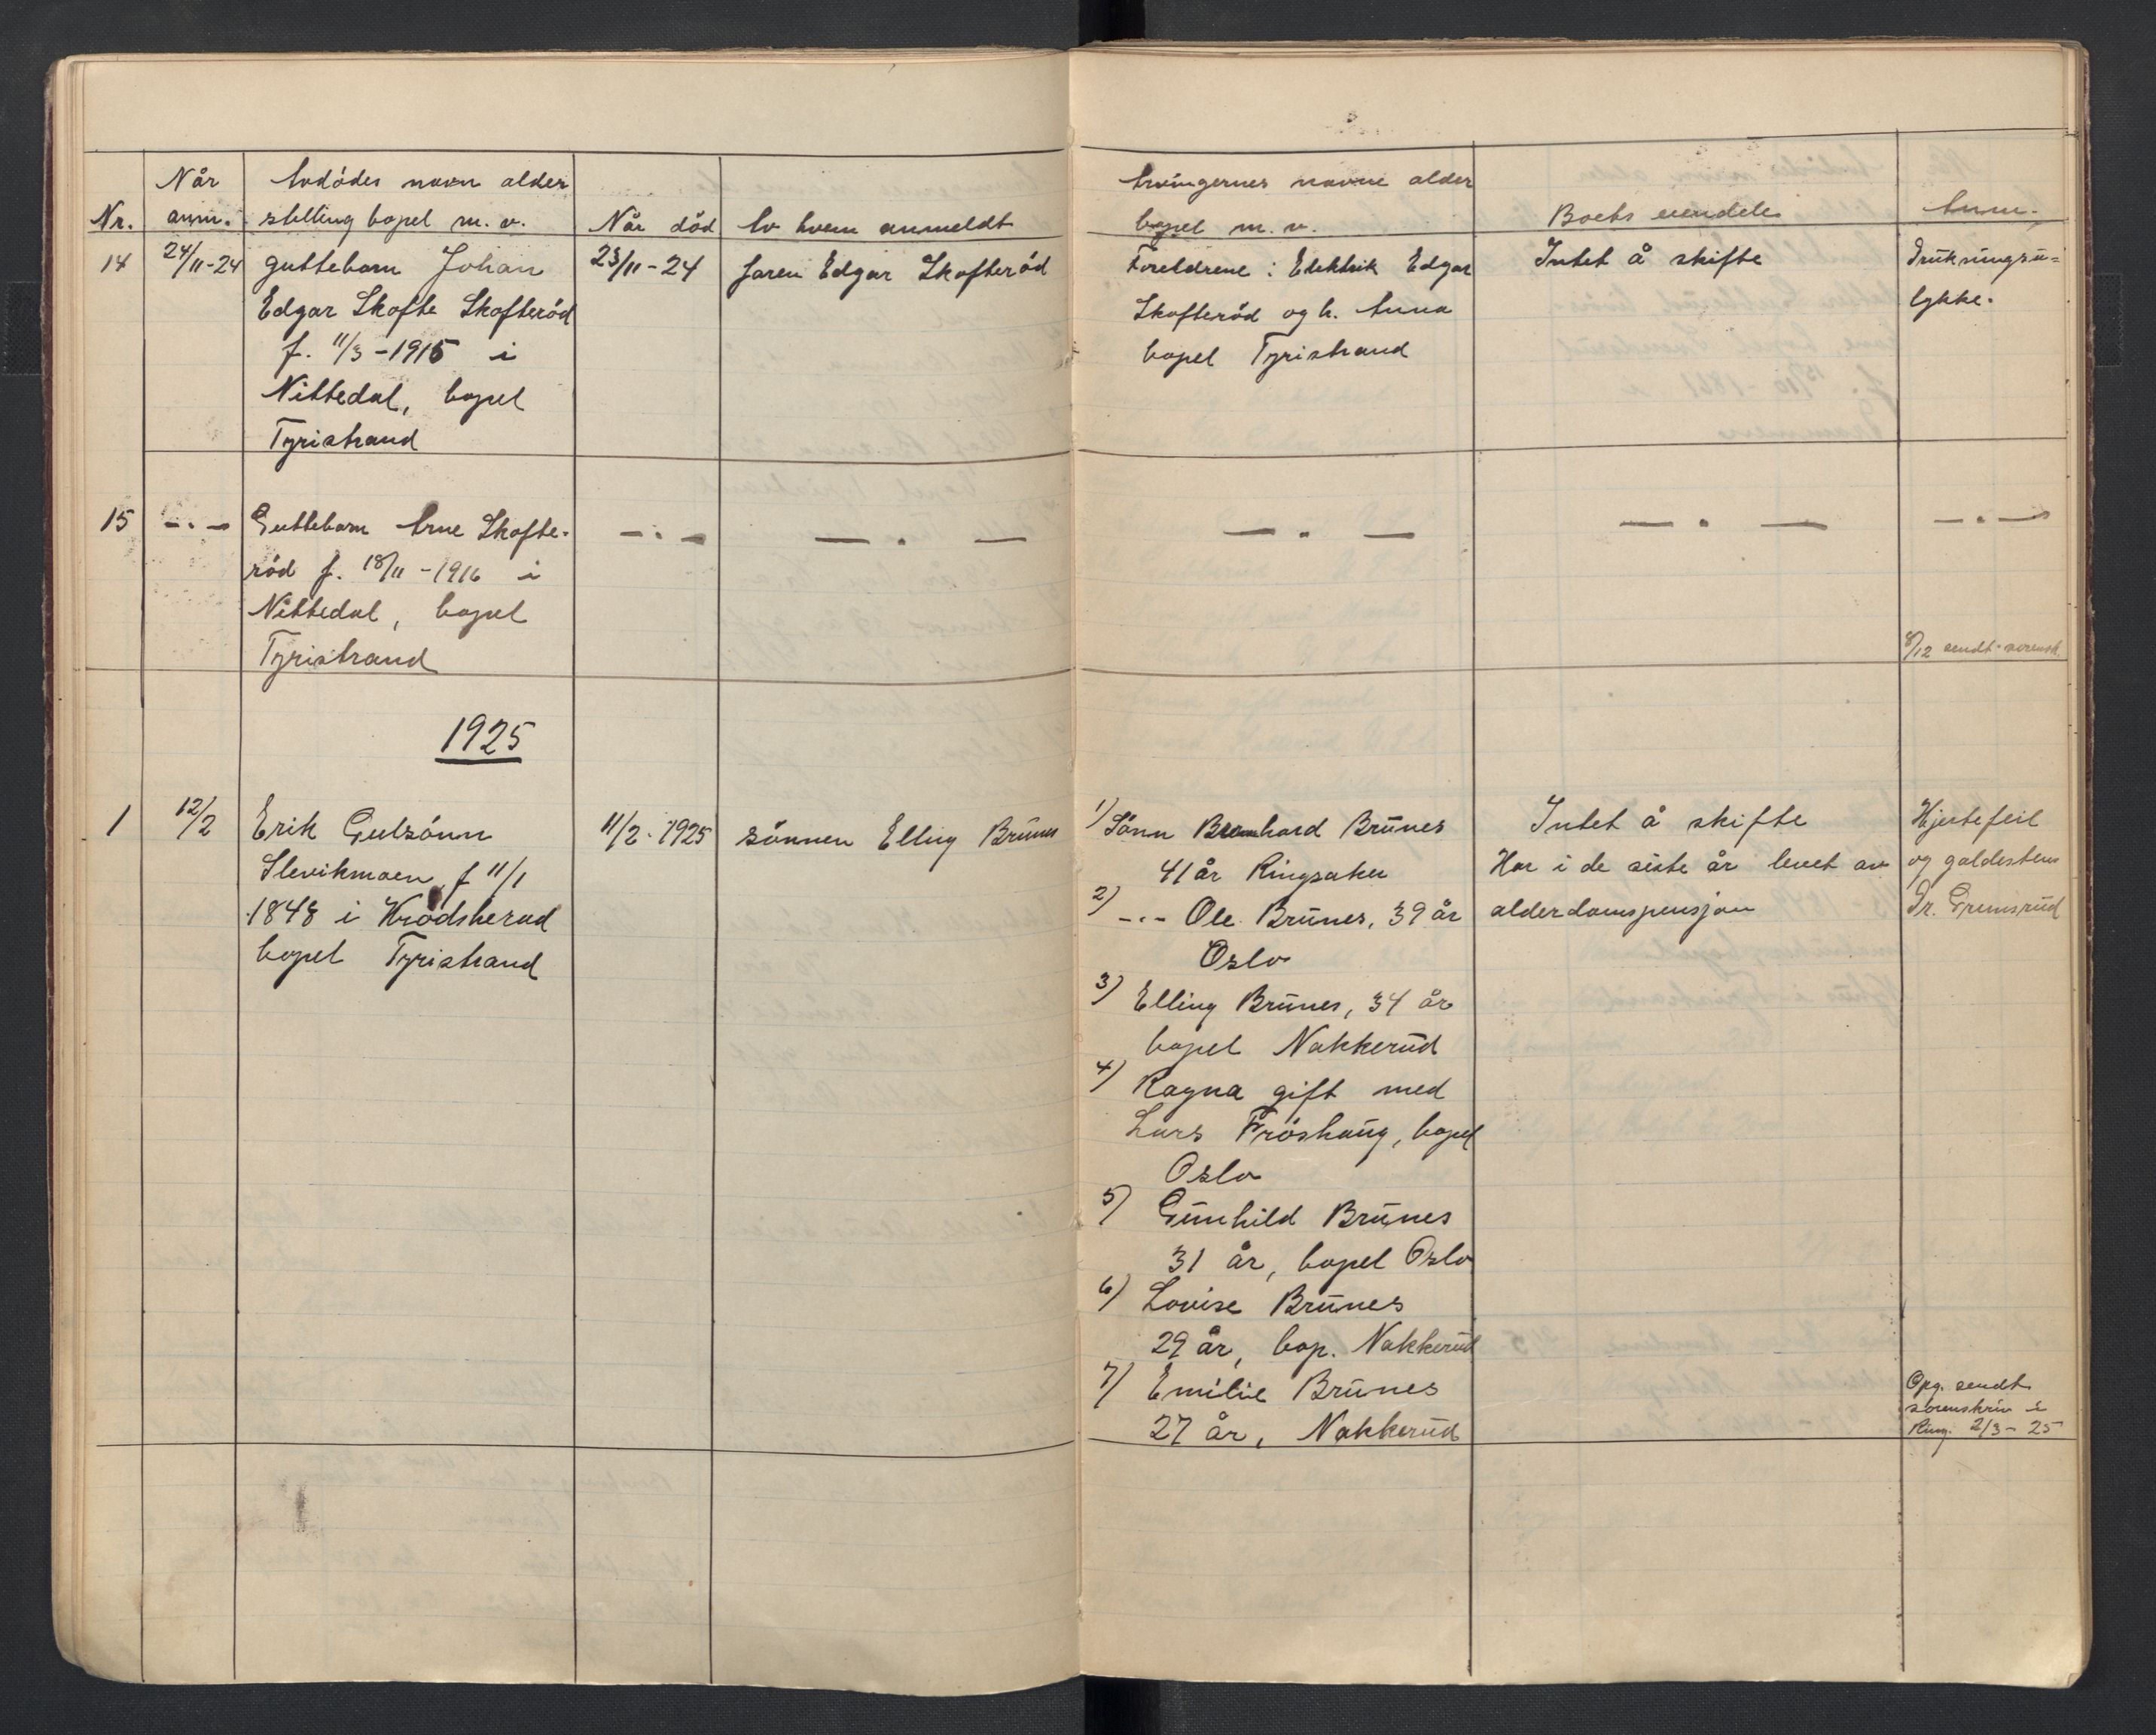 Nr.
Når
anm.
Avdödes navn alder
stilling bopel m. v.
Når död
Av hvem anmeldt
Arvingernes navne alder
bopel m. v.
Boets eiendele
Anm.
14
24/11-24
guttebarn Johan
Edgar Skofte Skofteröd
f. 11/3-1915 i
Nittedal, bopel
Tyristrand
23/11-24
faren Edgar Skofteröd
Foreldrene : Elektrik Edgar
Skofteröd og h. Anna
bopel Tyristrand
Intet å skifte
Drukningsu=
lykke.
15
-.-
Guttebarn Arne Skofte-
röd f. 18/11-1916 i
Nittedal, bopel
Tyristrand
-.-
- . -
- . -
- . -
-.-
8/12 sendt sorensk.
1925
1
12/2
Erik Gulsönn
Slevikmoen f 11/1
1848 i Krödsherad
bopel Tyristrand
11/2-1925
sönnen Elling Brunes
1) Sönn Bernhard Brunes
41 år Ringsaker
2) -.- Ole Brunes, 39 år
Oslo
3) Elling Brunes, 34 år
bopel Nakkerud
4) Ragna gift med
Lars Fröshaug, bopel
Oslo
5) Gunhild Brunes
31 år, bopel Oslo
6) Lovise Brunes
29 år, bop. Nakkerud
7) Emilie Brunes
27 år, Nakkerud
Intet å skifte
Har i de siste år levet av
alderdomspensjon
Hjertefeil
og galdesten
Dr. Gremsrud
Opg. sendt
sorenskriv i
Ring. 2/3-25